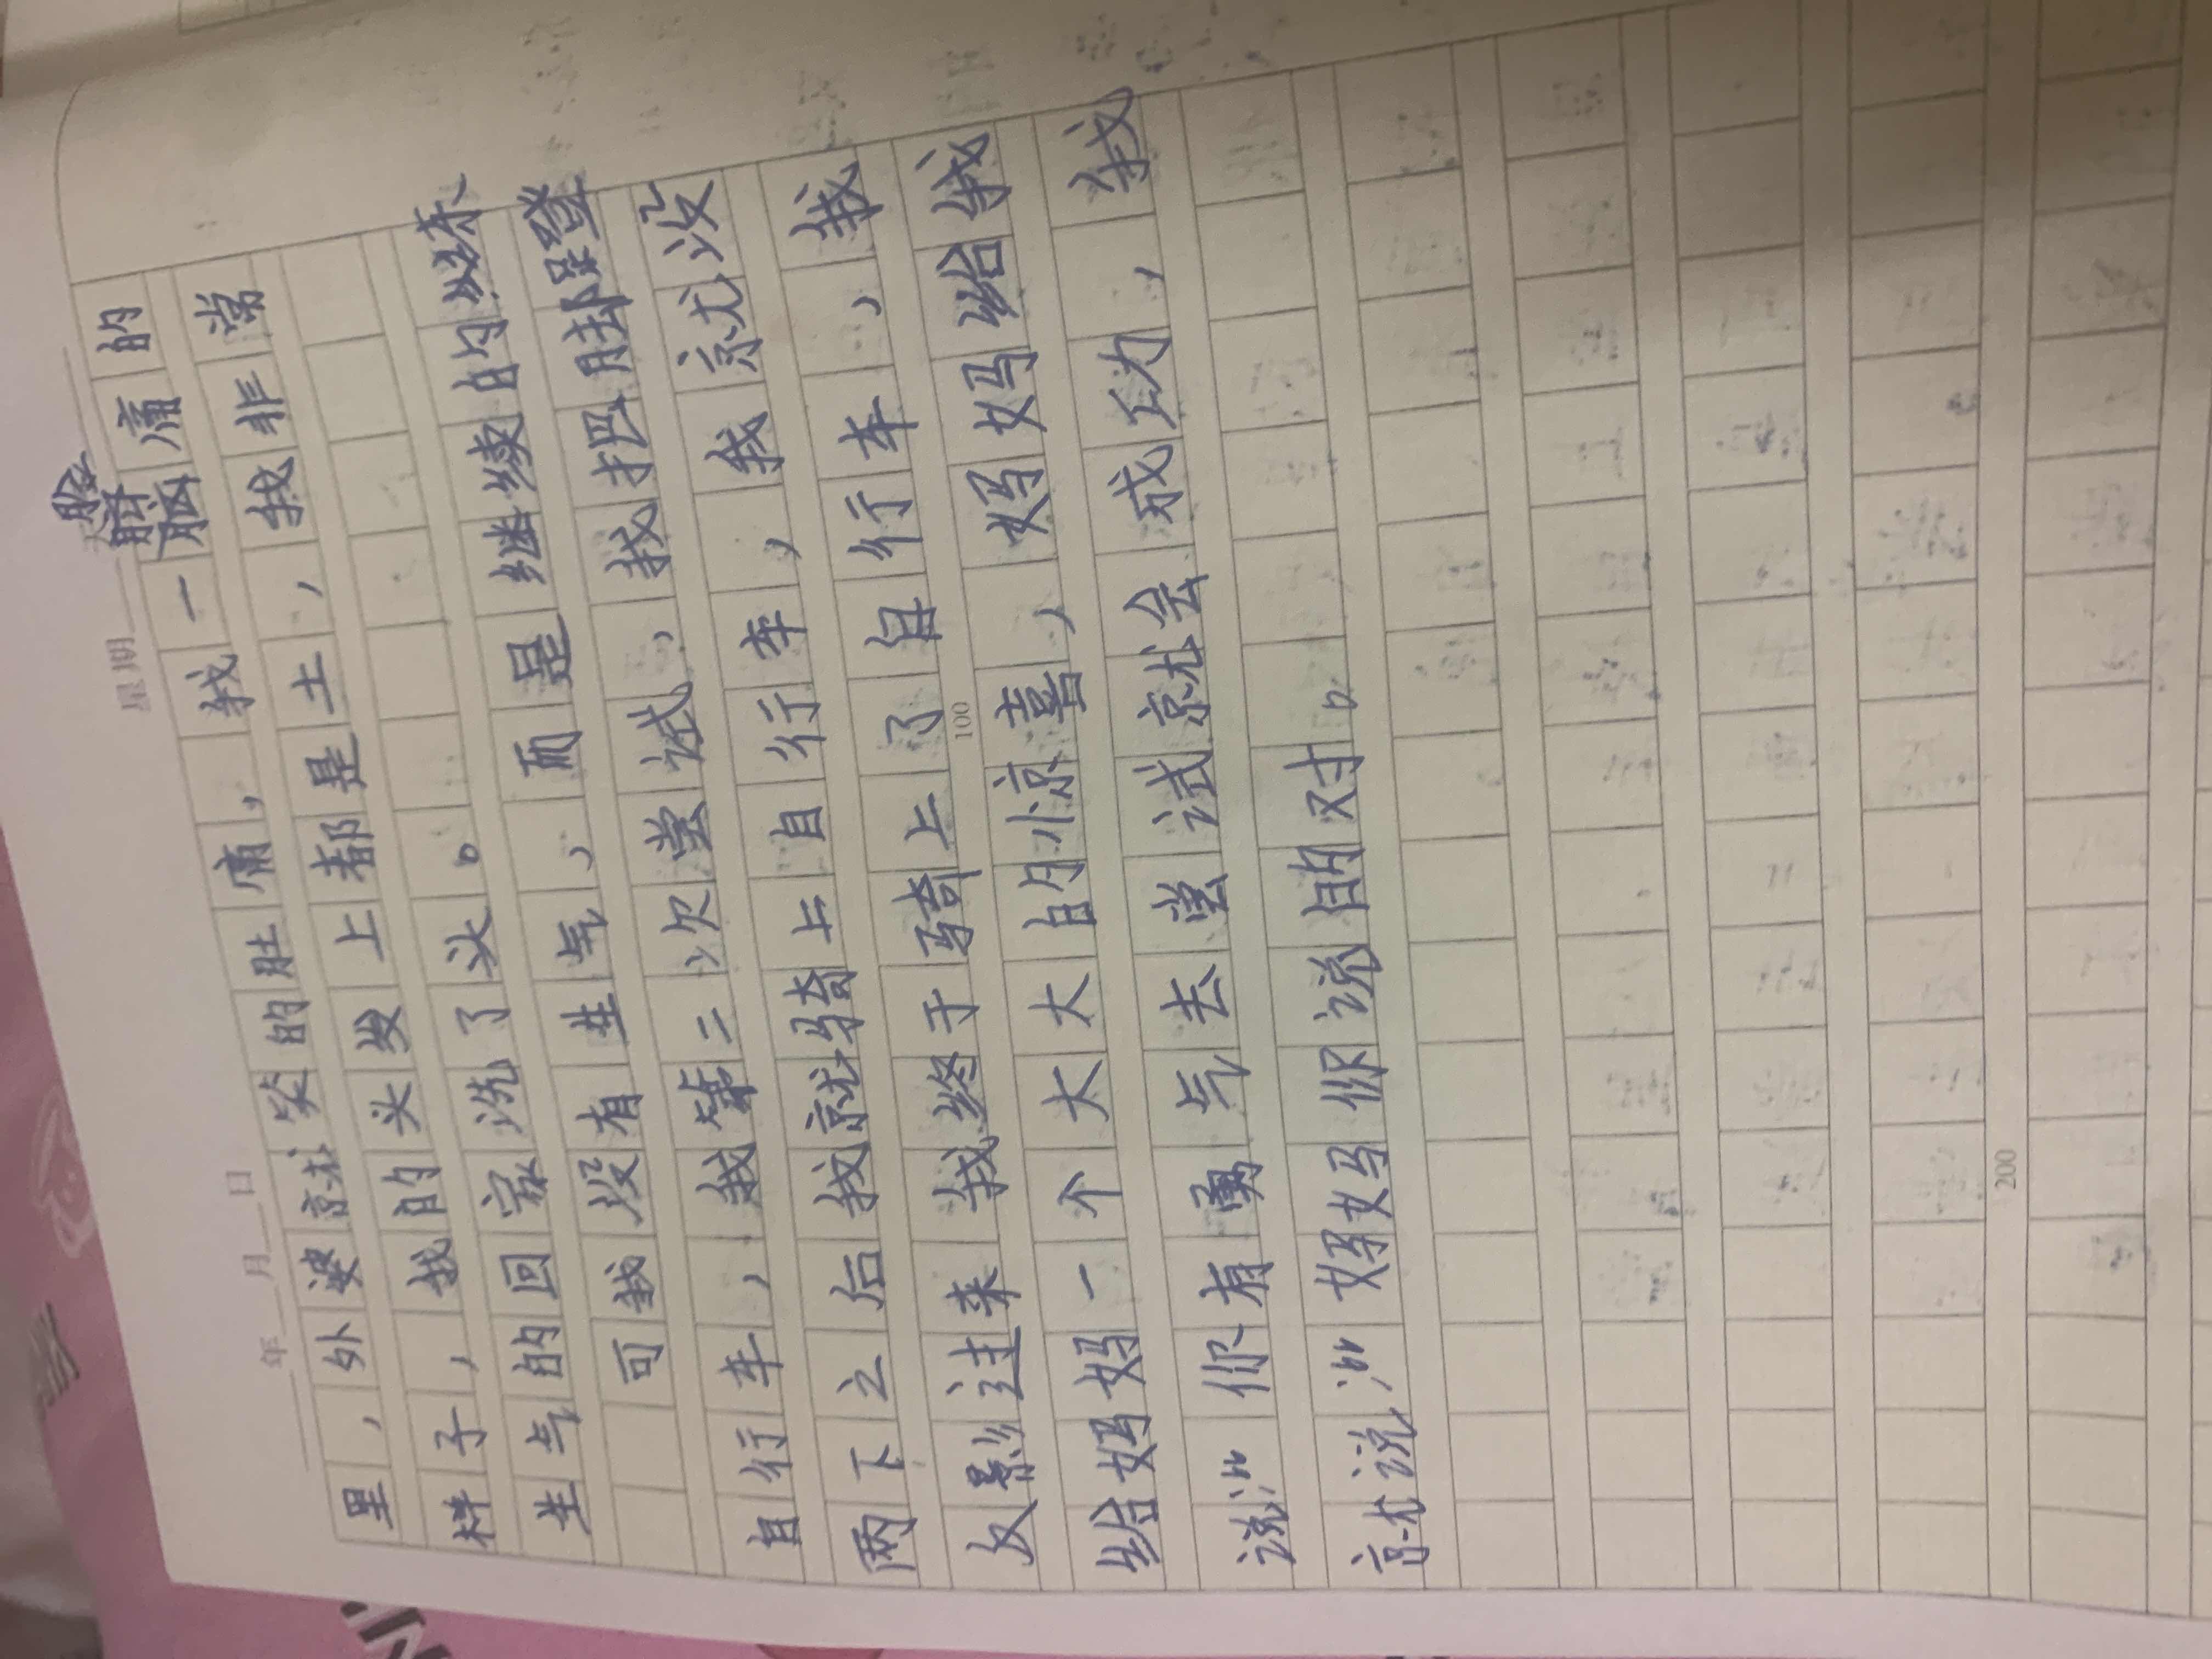 年 月 日 星期
里，外婆就笑的肚痛，我一脑痛的
样子，我的头发上都是土，我非常
生气的回家洗了头。
可我没有生气，而是继续的练
自行车，我第二次尝试，我把脚蹬
两下之后我就骑上自行车，我就没
反影过来我终于骑上了自行车，我
给妈妈一个大大的惊喜，妈妈给我
说：“你有勇气去尝试就会成功，我
就说：“妈妈你说的对。
100
200